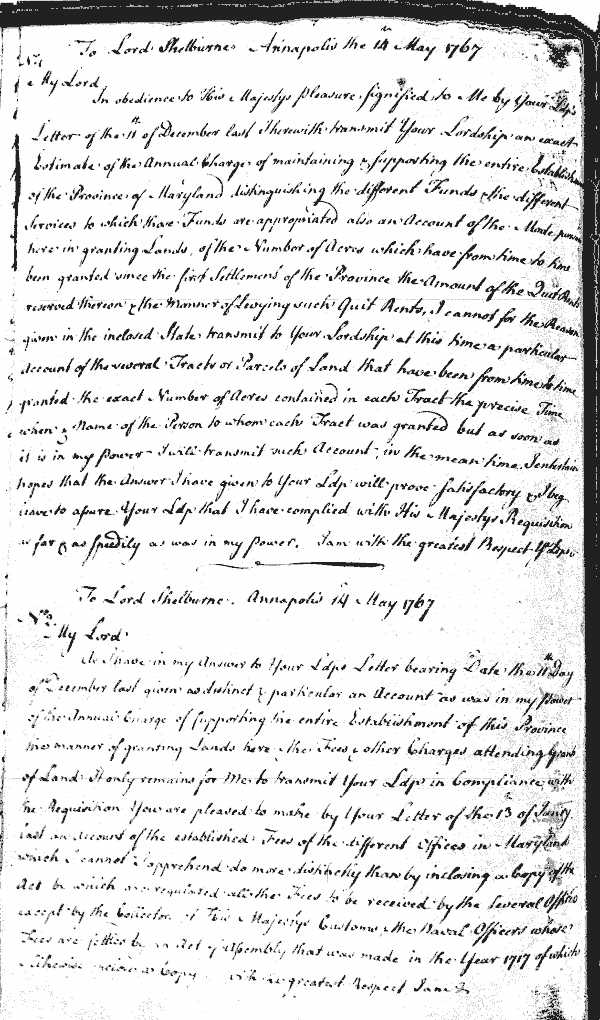 To Lord Shelburne. Annapolis the 14th May 1767
No. 1
My Lord
In obedience to His Majestys pleasure signified to Me by Your Ldps
Letter of the 11th of December last I herewith transmit Your Lordship an exact
Estimate of the Annual Charge of maintaining & supporting the entire Establishm
of the Province of Maryland distinguishing the different Funds & the different
Services to which those Funds are appropriated also an Account of the Mode pursu
here in granting Lands, of the Number of Acres which have from time to time
been granted since the first Settlement of the Province the Amount of the Quit Rents
reserved thereon & the Manner of Levying such Quit Rents, I cannot for the Reason
given in the inclosed State transmit to Your Lordship at this time a particular
Account of the several Tracts or Parcels of Land that have been from time to time
granted the exact Number of Acres contained in each Tract the precise Time
when & Name of the Person to whom each Tract was granted but as soon as
it is in my power I will transmit such Account, in the mean time I entertain
hopes that the Answer I have given to Your Ldp will prove satisfactory & I beg
leave to assure Your Ldp that I have complied with His Majestys Requisition
as far & as speedily as was in my power. I am with the greatest Respect Yr Ldps
To Lord Shelburne. Annapolis 14 May 1767
No. 2
My Lord
As I have in my Answer to Your Ldps Letter bearing Date the 11th Day
of December last given as distinct & particular an Account as was in my power
of the Annual Charge of supporting the entire Establishment of this Province
the manner of granting Lands here & the Fees & other Charges attending Grants
of Land It only remains for Me to transmit Your Ldp in Compliance with
the Requisition You are pleased to make by Your Letter of the 13 of Janry
last an Account of the established Fees of the different Offices in Maryland
which I cannot I apprehend do more distinctly than by inclosing a Copy of the
Act by which are regulated all the Fees to be received by the several Officers
except by the Collector of His Majestys Customs & the Naval Officers whose
Fees are settled by an Act of Assembly that was made in the Year 1717 of which
I likewise inclose a Copy with the greatest Respect I am &